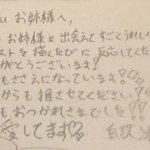 u お姉様へ,
お姉様と出会えてすごくうれしい
ストを描くたびに反応してくた
がとうございます!
もささえになっています!
からも推させてください!
もおつかれさまでした!!
愛してます
白玖